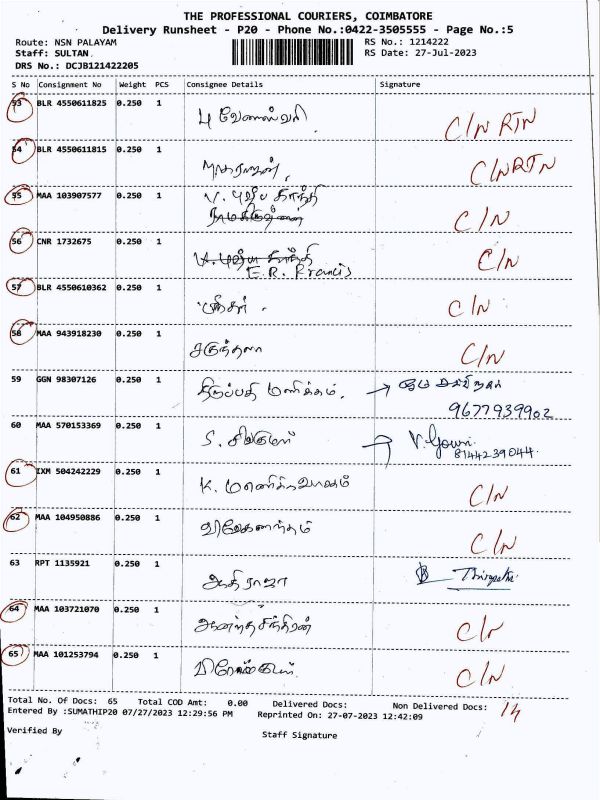 THE PROFESSIONAL COURIERS, COIMBATORE
Delivery Runsheet - P20 - Phone No.:0422-3505555 - Page No.:5
Route: NSN PALAYAM RS No.: 1214222
Staff: SULTAN. RS Date: 27-Jul-2023
DRS No.: DCJB121422205
S No Consignment No Weight PCS Consignee Details Signature
53 BLR 4550611825 0.250 1
C/N RTN
54 BLR 4550611815 0.250 1
C/N RTN
55 MAA 103907577 0.250 1
C/N
56 CNR 1732675 0.250 1
E.R. Francis C/N
57 BLR 4550610362 0.250 1
C/N
58 MAA 943918230 0.250 1
சகுந்தலா C/N
59 GGN 98307126 0.250 1
திருப்பதி மாணிக்கம்.
9677939902
60 MAA 570153369 0.250 1
S. சிவகுமார் V. Gowri
8144239044
61 IXM 504242229 0.250 1
K. மாணிக்கவாசகம் C/N
62 MAA 104950886 0.250 1
விவேகானந்தம் C/N
63 RPT 1135921 0.250 1
ஆதிராஜா
64 MAA 103721070 0.250 1
ஆனந்தசந்திரன் C/N
65 MAA 101253794 0.250 1
C/N
Total No. Of Docs: 65 Total COD Amt: 0.00 Delivered Docs: Non Delivered Docs:
Entered By :SUMATHIP20 07/27/2023 12:29:56 PM Reprinted On: 27-07-2023 12:42:09
Verified By Staff Signature